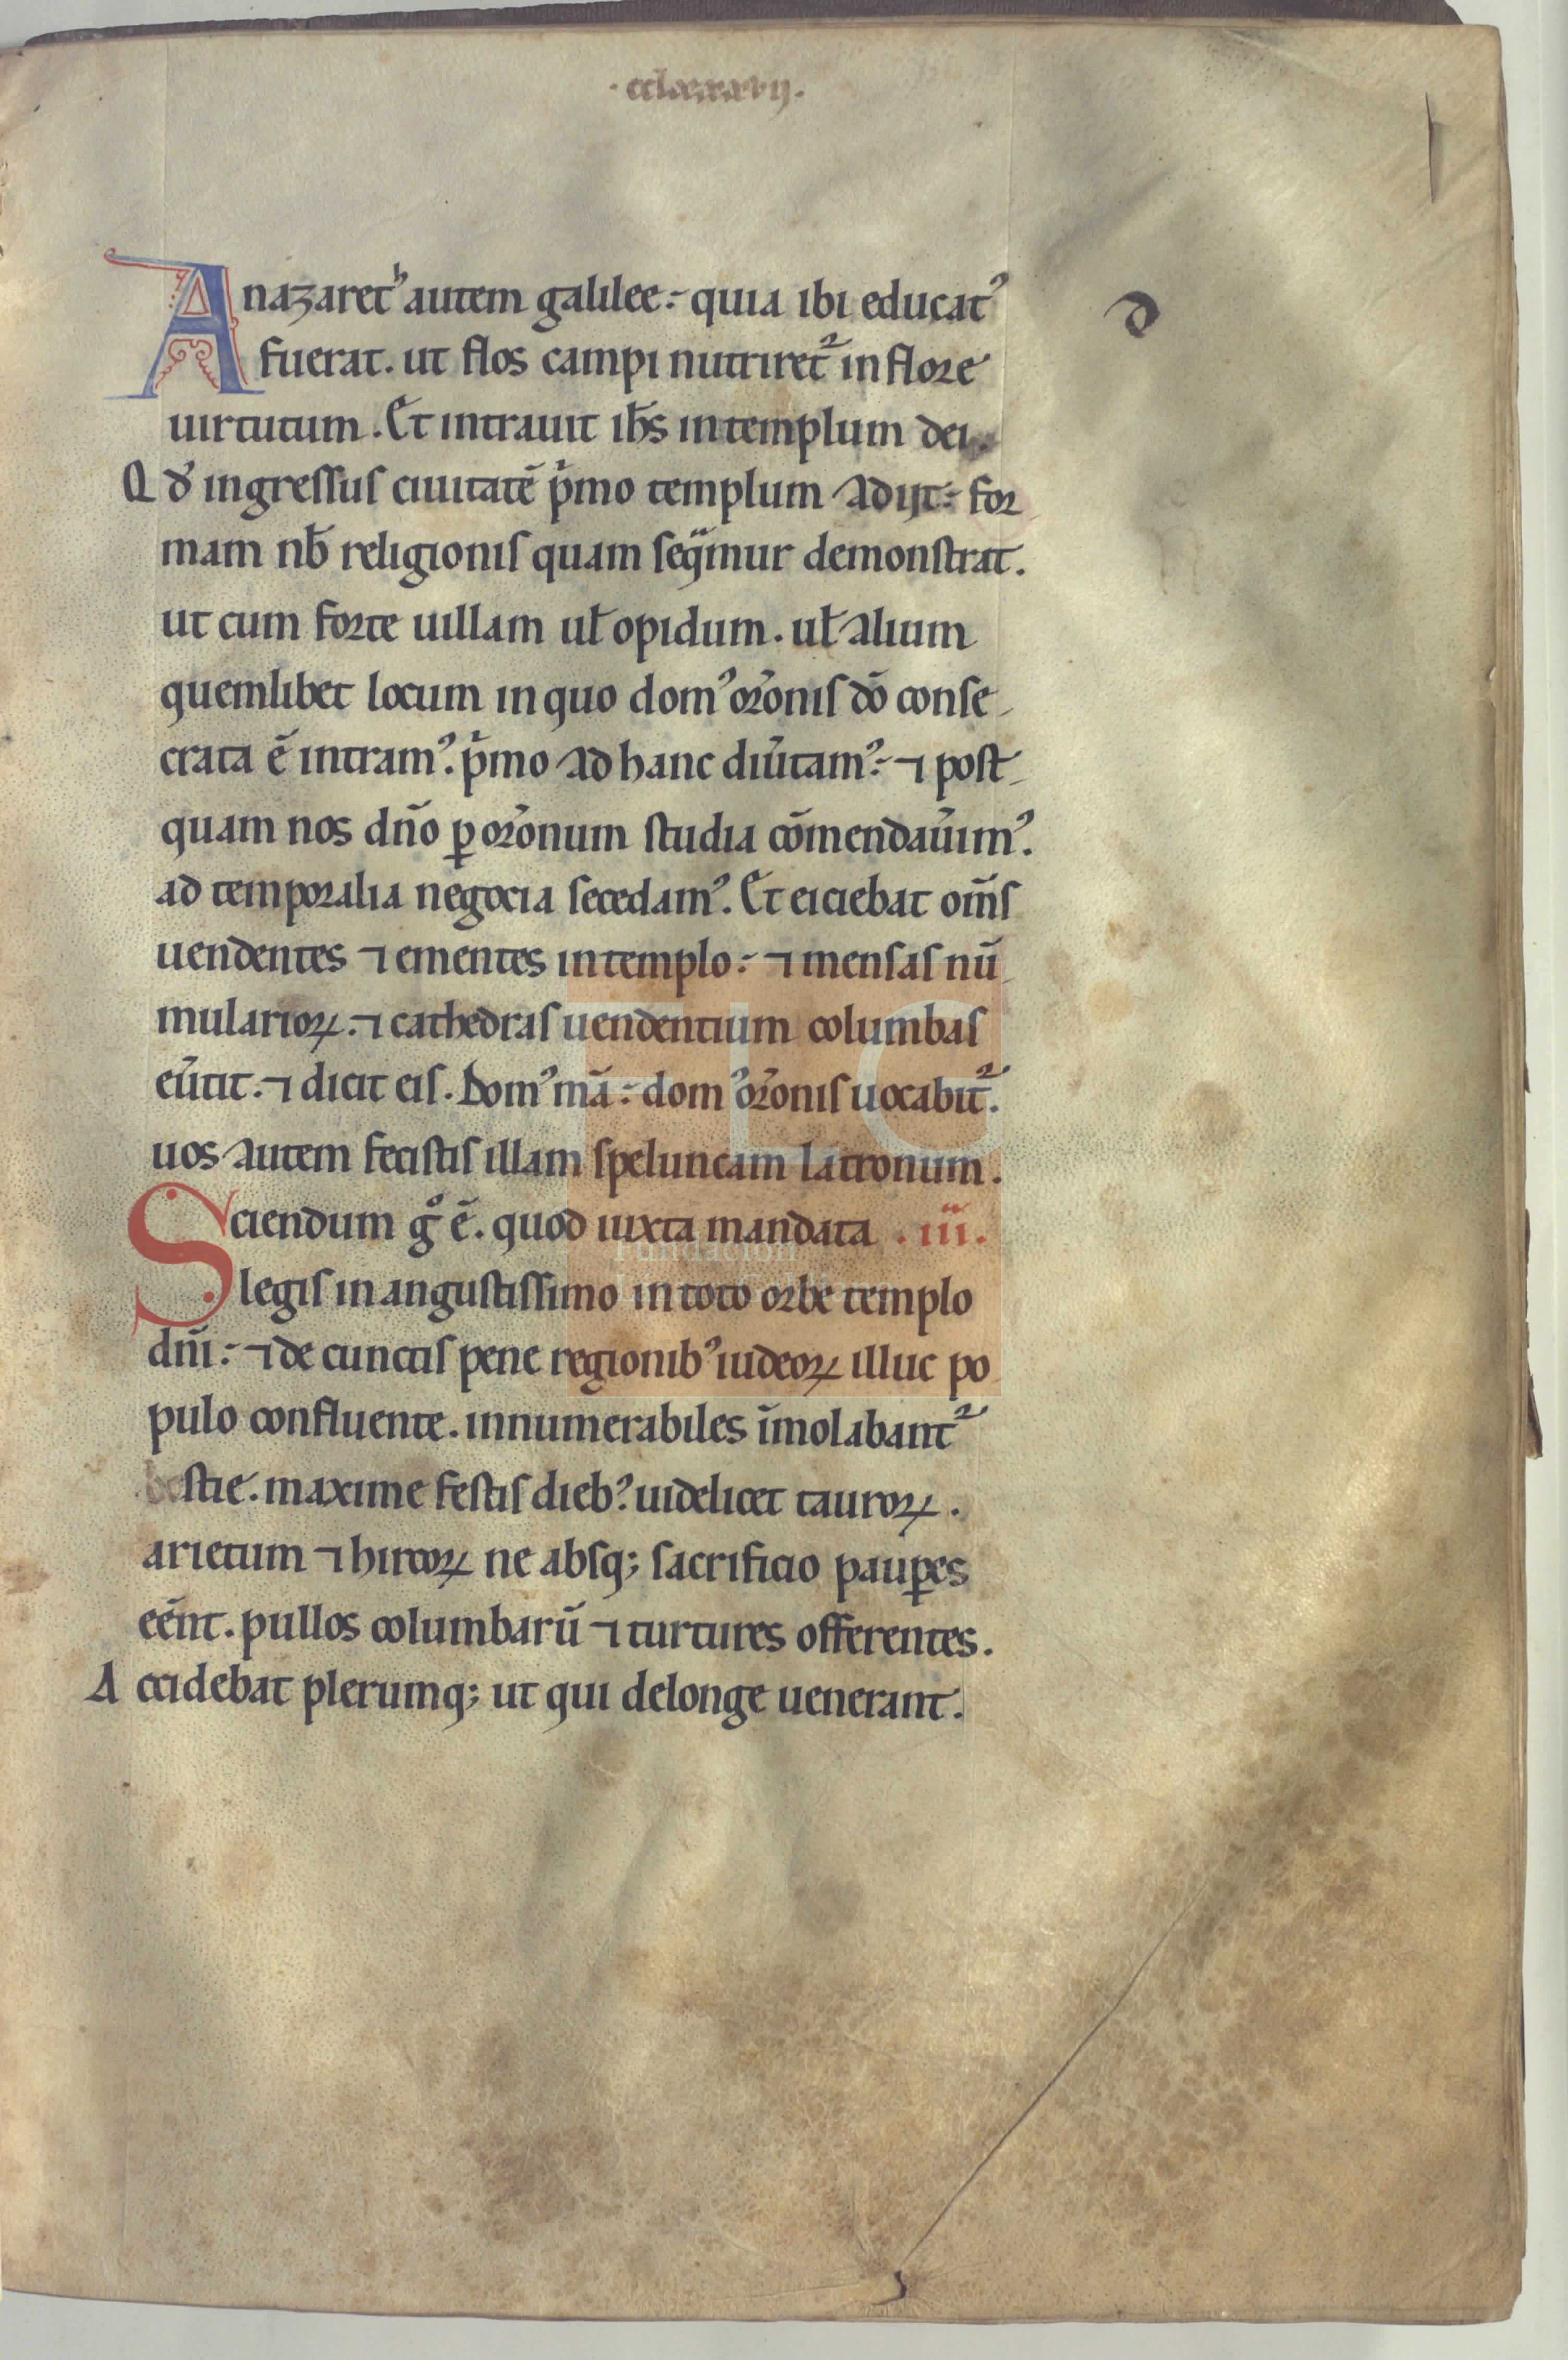 ·cclxxxxvij.
A nazaret᷒ autem galilee : quia ibi educatꝰ
fuerat. ut flos campi nutriret᷑ in flore
uirtutum. Et intrauit ihs̄ in templum dei.
Qd̓ ingressus ciuitatē pͥmo templum adijt : for
mam nb̄ religionis quam seqͥmur demonstrat.
ut cum forte uillam ul̄ opidum. ul̄ alium
quemlibet locum in quo domꝰ or̄onis dō conse
crata ē intramꝰ. pͥmo ad hanc diu̓tamꝰ : ⁊ post
quam nos dn̄o ꝑ or̄onum studia cōmendau̓imꝰ.
ad temporalia negocia secedamꝰ. Et eiciebat om̄s
uendentes ⁊ ementes in templo : ⁊ mensas nū
mularioꝝ. ⁊ cathedras uendentium columbas
eu̓tit. ⁊ dicit eis. Domꝰ mā : domꝰ or̄onis uocabit᷑.
uos autem fecistis illam speluncam latronum.
Sciendum gͦ ē. quod iuxta mandata .iii.
legis in angustissimo in toto orbe templo
dn̄i : ⁊ de cunctis pene regionibꝰ iudeoꝝ illuc po
pulo confluente. innumerabiles īmolabant᷑
bestie. maxime festis diebꝰ. uidelicet tauroꝝ.
arietum ⁊ hircoꝝ ne absq; sacrificio pauꝑes
eēnt. pullos columbarū ⁊ turtures offerentes.
Accidebat plerumq; ut qui delonge uenerant.